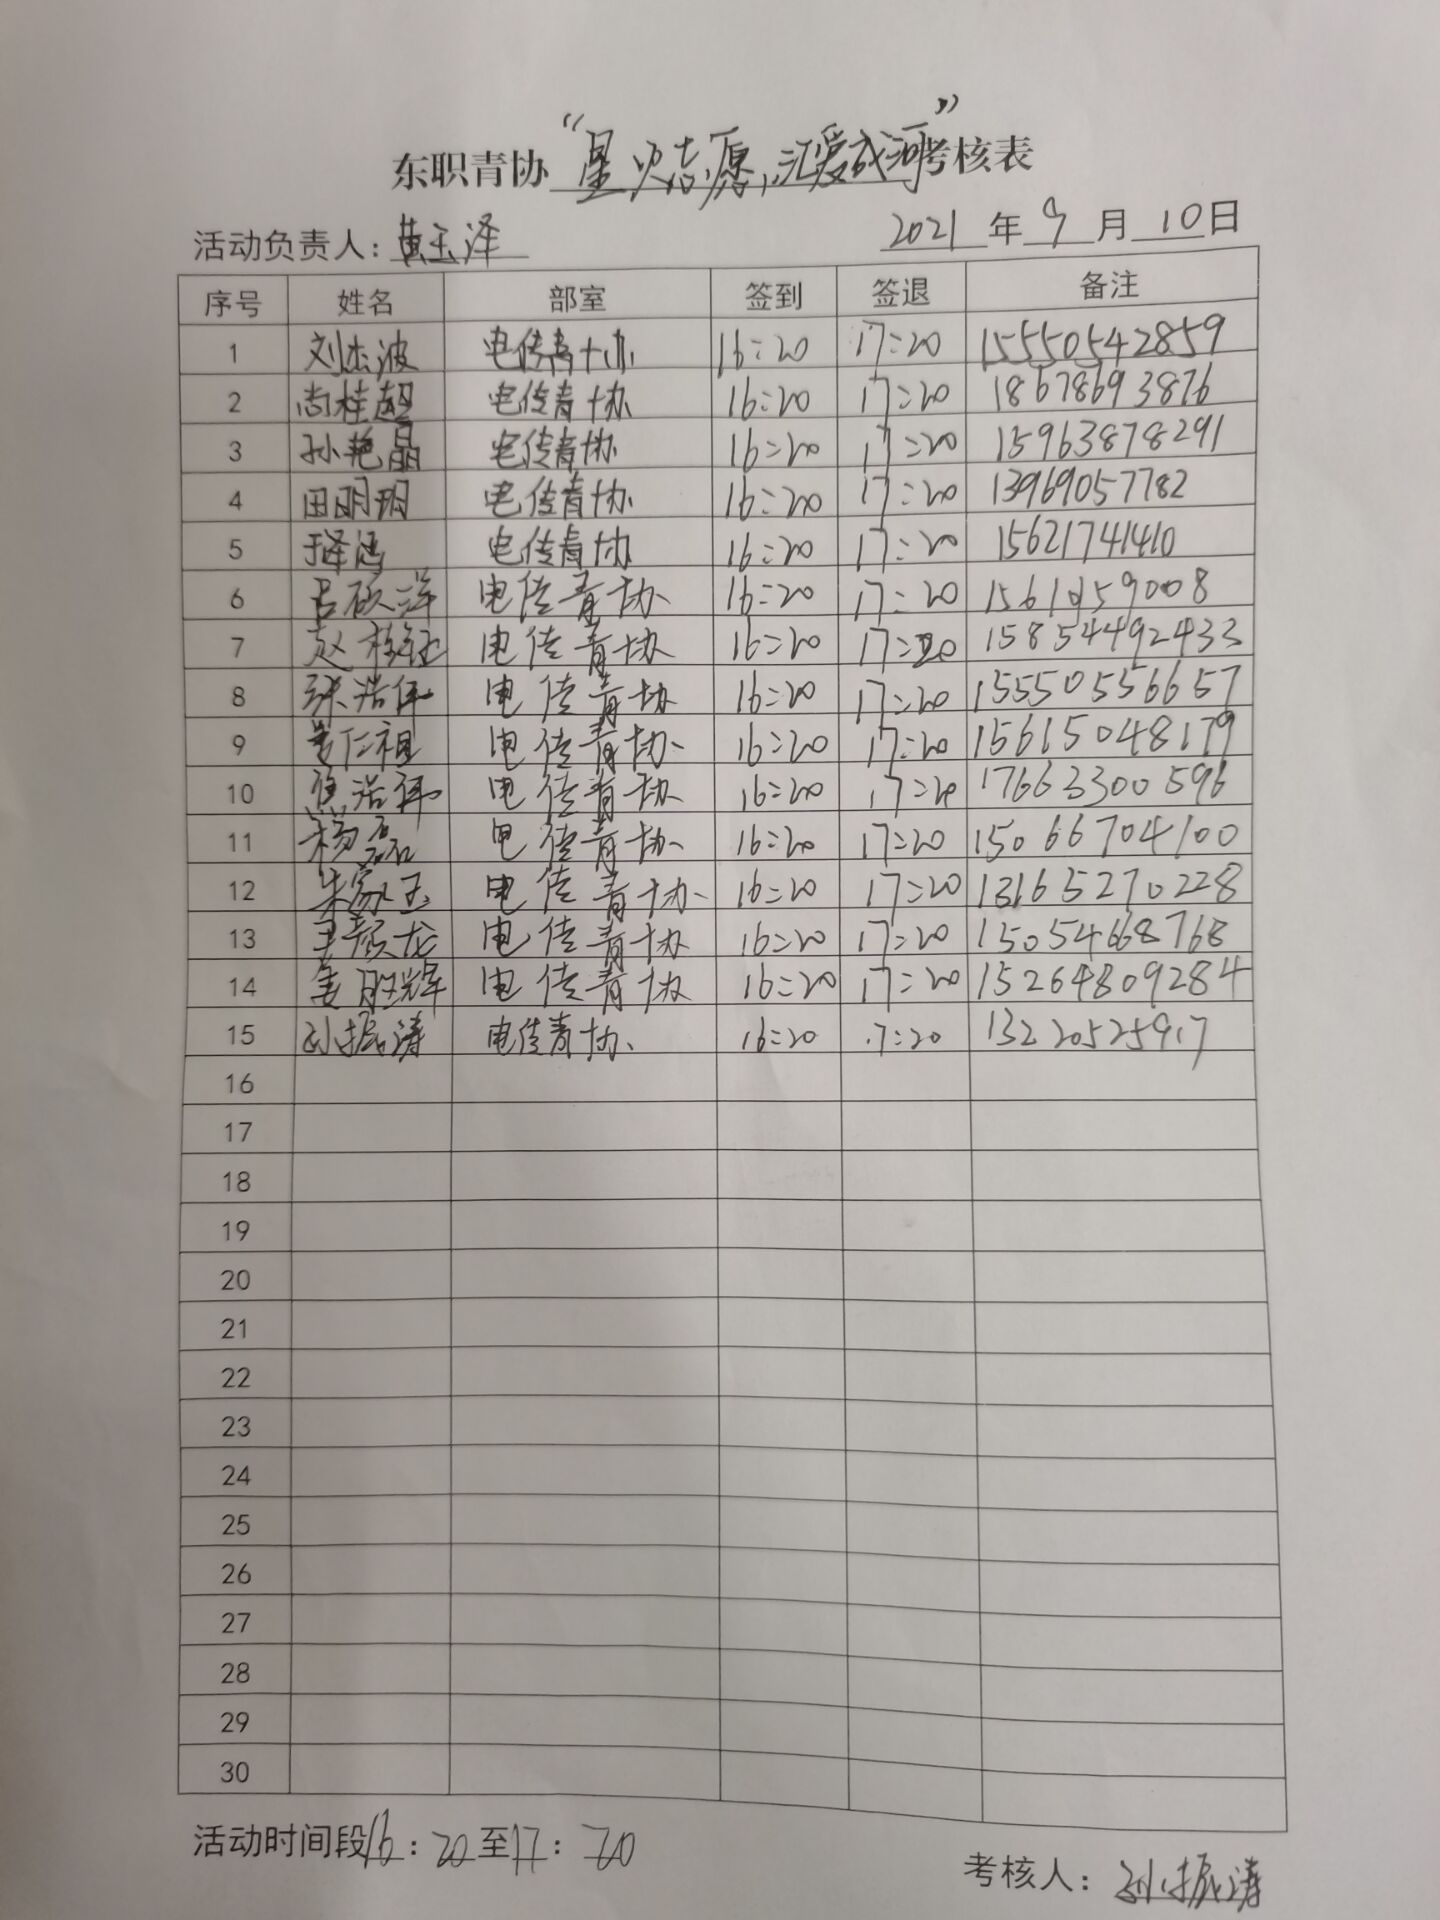 东职青协“星火志愿，汇爱成河”考核表
活动负责人：黄玉泽 2021年9月10日
序号 姓名 部室 签到 签退 备注
1 刘杰波 电传青协 16:20 17:20 15550542859
2 尚桂超 电传青协 16:20 17:20 18678693876
3 孙艳晶 电传青协 16:20 17:20 15963878291
4 田明玥 电传青协 16:20 17:20 13969057782
5 于泽涵 电传青协 16:20 17:20 15621741410
6 吕硕洋 电传青协 16:20 17:20
7 赵 电传青协 16:20 17:20 15854492433
8 张浩伟 电传青协 16:20 17:20 15550556657
9 仁祖 电传青协 16:20 17:20 15615048179
10 浩伟 电传青协 16:20 17:20 17663300596
11 杨磊 电传青协 16:20 17:20 15066704100
12 朱家玉 电传青协 16:20 17:20 13165270228
13 王颜龙 电传青协 16:20 17:20 15054668768
14 姜胜辉 电传青协 16:20 17:20 15264809284
15 孙振涛 电传青协 16:20 17:20 13220525917
16
17
18
19
20
21
22
23
24
25
26
27
28
29
30
活动时间段16:20至17:20
考核人：孙振涛